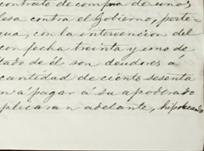 contrato de compra de unos
esa contra el Gobierno, porte-
cua, con la intervencion del
con fecha treinta y uno de
tado de él son deudores á
cantidad de ciento sesenta
n á pagar á su apoderado
plicaran adelante, hipotecado